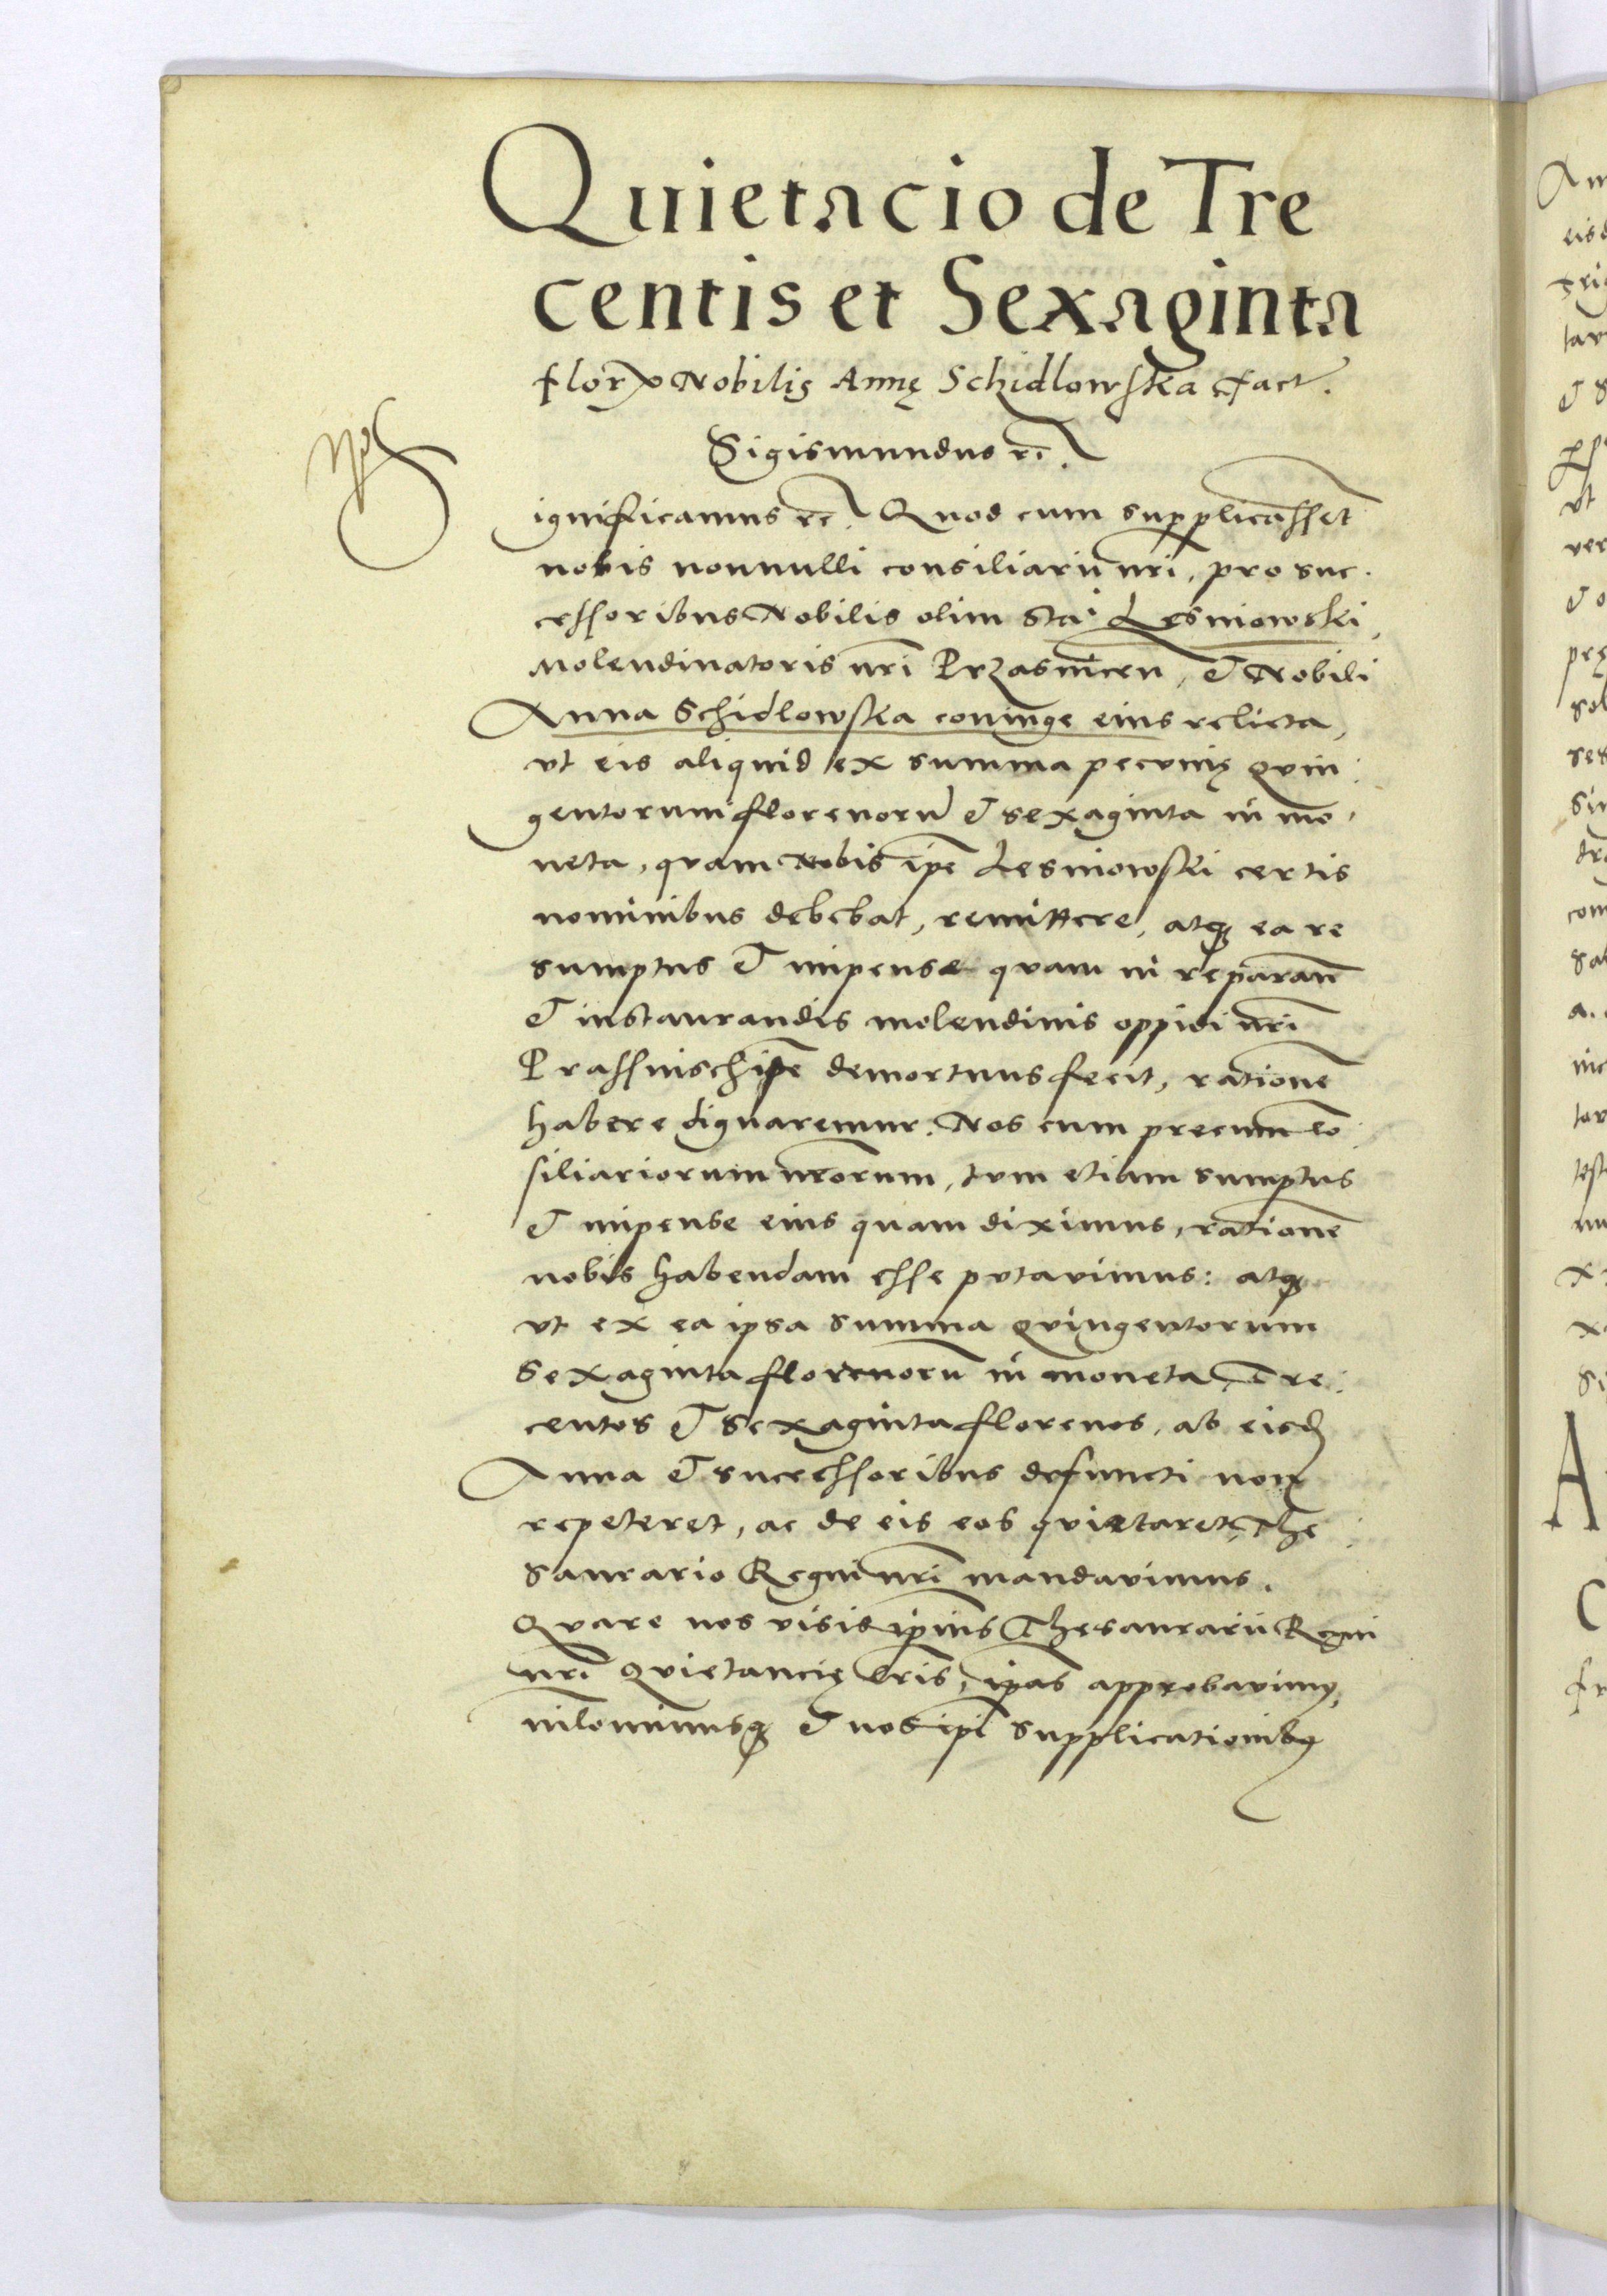 Quietacio de Tre
centis et Sexaginta
flor̄ Nobilis Annę Schidlowska fact.
Sigismundus rc̄.
ignificamus rc̄. Quod cum supplicasset̄
nobis nonnulli consiliarii nr̄i, pro suc.
cessoribus Nobilis olim Sta: Lesniowski,
Molendinatoris nr̄i , et Nobili
Anna Schidlowska coniuge eius relicta,
vt eis aliquid ex summa pecunię quin:
gentorum florenorū et sexaginta in mo.
neta, quam Nobis ip̄e Lesniowski certis
nominibus debebat, remittere, atq3 ea re
sumptus et impense quam in reparan̄
et instaurandis molendinis oppidi nr̄i
ip̄e demortuus fecit, rationē
habere dignaremur. Nos cum precum cō
siliariorum nr̄orum, tum etiam sumptus
et impense eius quam diximus, rationē
nobis habendam esse putavimus: atq3
vt ex ea ipsa summa quingentorum
Sexaginta florenorū in moneta, Tre:
centos et sexaginta florenos, ab eisd̄
Anna et successoribus defuncti non
repeteret, ac de eis eos quietaret, The:
saurario Regni nr̄i mandavimus.
Quare nos visis ip̄ius Thesaurarii Regni
nr̄i quietancię lr̄is, ip̄as approbavimꝰ,
nihlominusq3 et nos ip̄i supplicationibꝰ